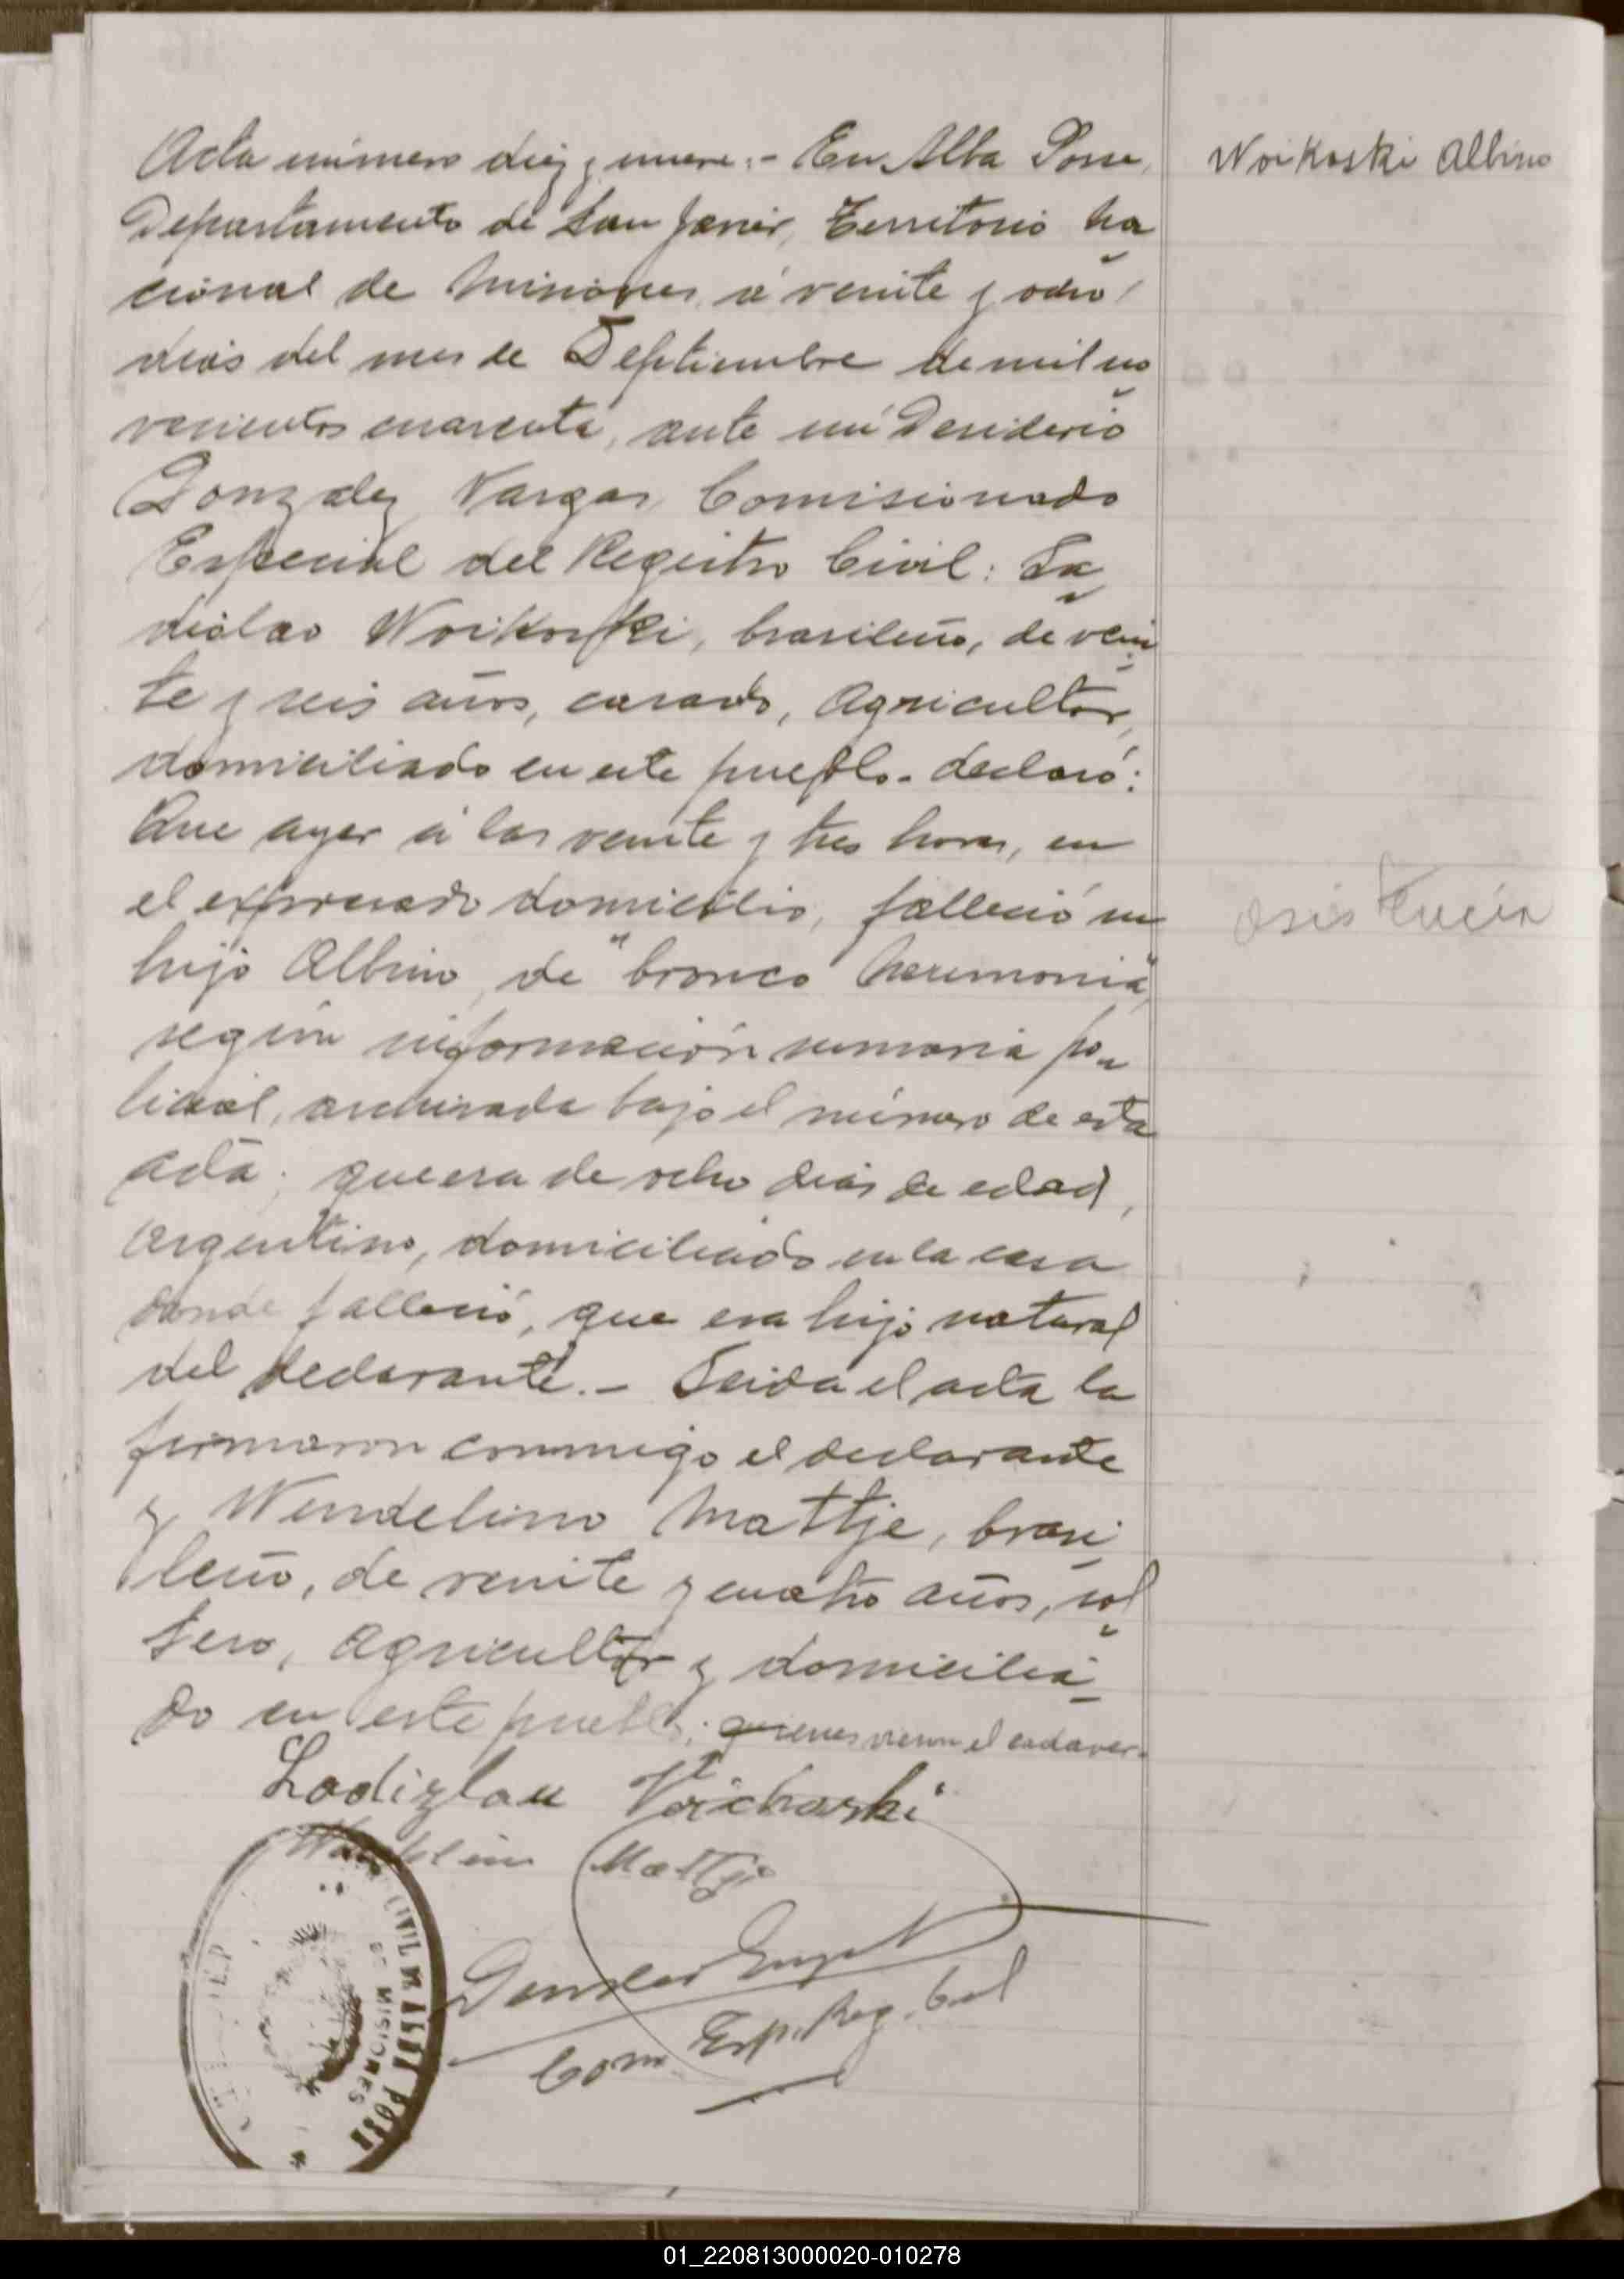 Acta número diez y nueve:- En Alba Posse,
Departamento de San Javier, Territorio Na
cional de Misiones, a veinte y ocho
dias del mes de Septiembre de mil no
vecientos cuarenta, ante mi Desiderio
Gonzalez Vargas, Comisionado
Especial del Registro Civil: La
dislao Woikoski, brasileño, de vein
te y seis años, casado, Agricultor,
domiciliado en este pueblo. declaró:
Que ayer á las veinte y tres horas, en
el expresado domicilio, falleció su
hijo Albino, de "bronco Neumonia",
según información sumaria po
licial, archivada bajo el número de esta
acta; que era de ocho dias de edad,
Argentino, domiciliado en la casa
donde falleció, que era hijo natural
del declarante.- Leida el acta la
firmaron conmigo el declarante
y Wendelino Mattje, brasi
leño, de veinte y cuatro años, sol
tero, Agricultor y domicilia
do en este pueblo; quienes vieron el cadaver.
Ladizlau Voichoski
Mattje
Com. Esp. Reg. Civil
CIVIL DE ALBA POSSE
DE MISIONES
Woikoski Albino
01_220813000020-010278